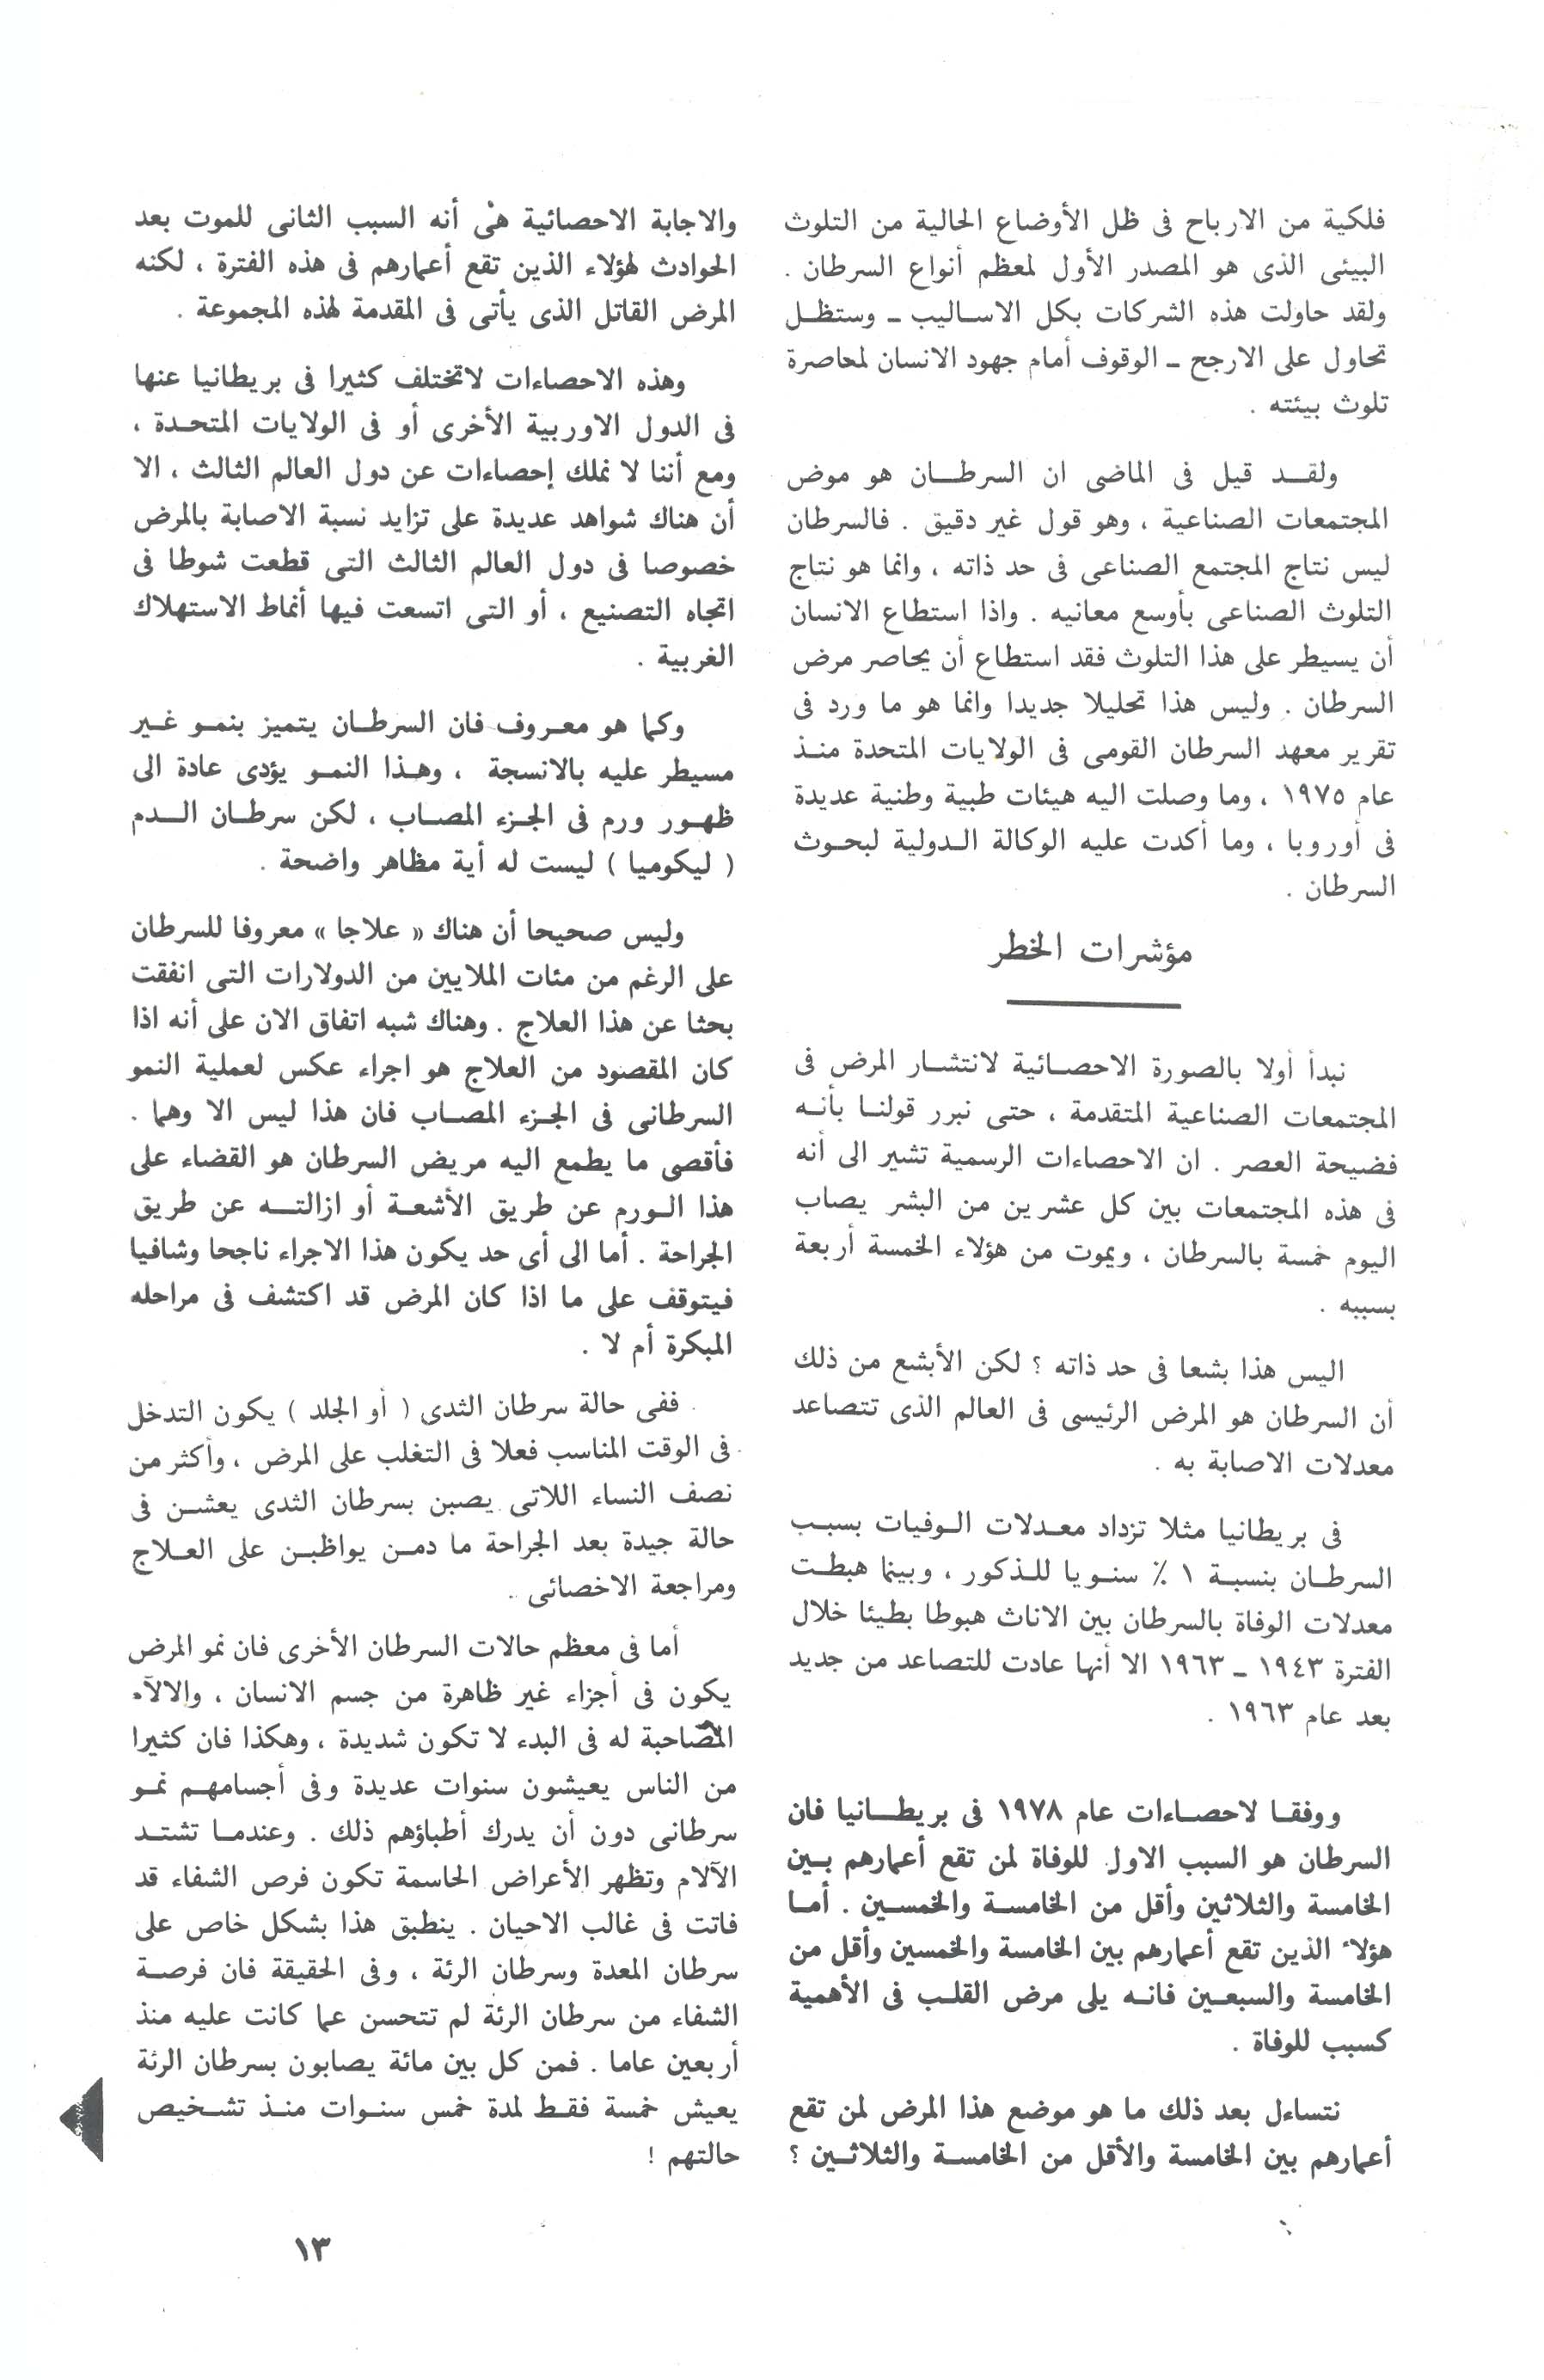 فلكية من الارباح فى ظل الأوضاع الحالية من التلوث
البيئى الذى هو المصدر الأول لمعظم أنواع السرطان .
ولقد حاولت هذه الشركات بكل الاساليب ـ وستظل
تحاول على الارجح ـ الوقوف أمام جهود الانسان لمحاصرة
تلوث بيئته .
ولقد قيل فى الماضى ان السرطان هو موض
المجتمعات الصناعية ، وهو قول غير دقيق . فالسرطان
ليس نتاج المجتمع الصناعى فى حد ذاته ، وانما هو نتاج
التلوث الصناعى بأوسع معانيه . واذا استطاع الانسان
أن يسيطر على هذا التلوث فقد استطاع أن يحاصر مرض
السرطان . وليس هذا تحليلا جديدا وانما هو ما ورد فى
تقرير معهد السرطان القومى فى الولايات المتحدة منذ
عام ١٩٧٥ ، وما وصلت اليه هيئات طبية وطنية عديدة
فى أوروبا ، وما أكدت عليه الوكالة الدولية لبحوث
السرطان .
مؤشرات الخطر
نبدأ أولا بالصورة الاحصائية لانتشار المرض فى
المجتمعات الصناعية المتقدمة ، حتى نبرر قولنا بأنه
فضيحة العصر . ان الاحصاءات الرسمية تشير الى أنه
فى هذه المجتمعات بين كل عشرين من البشر يصاب
اليوم خمسة بالسرطان ، ويموت من هؤلاء الخمسة أربعة
بسببه .
اليس هذا بشعا فى حد ذاته ؟ لكن الأبشع من ذلك
أن السرطان هو المرض الرئيسى فى العالم الذى تتصاعد
معدلات الاصابة به .
فى بريطانيا مثلا تزداد معدلات الوفيات بسبب
السرطان بنسبة ١ ٪ سنويا للذكور ، وبينما هبطت
معدلات الوفاة بالسرطان بين الاناث هبوطا بطيئا خلال
الفترة ١٩٤٣ ـ ١٩٦٣ الا أنها عادت للتصاعد من جديد
بعد عام ١٩٦٣ .
ووفقا لاحصاءات عام ١٩٧٨ فى بريطانيا فان
السرطان هو السبب الاول للوفاة لمن تقع أعمارهم بين
الخامسة والثلاثين وأقل من الخامسة والخمسين . أما
هؤلاء الذين تقع أعمارهم بين الخامسة والخمسين وأقل من
الخامسة والسبعين فانه يلى مرض القلب فى الأهمية
كسبب للوفاة .
نتساءل بعد ذلك ما هو موضع هذا المرض لمن تقع
أعمارهم بين الخامسة والأقل من الخامسة والثلاثين ؟
والاجابة الاحصائية هى أنه السبب الثانى للموت بعد
الحوادث لهؤلاء الذين تقع أعمارهم فى هذه الفترة ، لكنه
المرض القاتل الذى يأتى فى المقدمة لهذه المجموعة .
وهذه الاحصاءات لاتختلف كثيرا فى بريطانيا عنها
فى الدول الاوربية الأخرى أو فى الولايات المتحدة ،
ومع أننا لا نملك إحصاءات عن دول العالم الثالث ، الا
أن هناك شواهد عديدة على تزايد نسبة الاصابة بالمرض
خصوصا فى دول العالم الثالث التى قطعت شوطا فى
اتجاه التصنيع ، أو التى اتسعت فيها أنماط الاستهلاك
الغربية .
وكما هو معروف فان السرطان يتميز بنمو غير
مسيطر عليه بالانسجة ، وهذا النمو يؤدى عادة الى
ظهور ورم فى الجزء المصاب ، لكن سرطان الدم
( ليكوميا ) ليست له أية مظاهر واضحة .
وليس صحيحا أن هناك « علاجا » معروفا للسرطان
على الرغم من مئات الملايين من الدولارات التى انفقت
بحثا عن هذا العلاج . وهناك شبه اتفاق الان على أنه اذا
كان المقصود من العلاج هو اجراء عكس لعملية النمو
السرطانى فى الجزء المصاب فان هذا ليس الا وهما .
فأقصى ما يطمع اليه مريض السرطان هو القضاء على
هذا الورم عن طريق الأشعة أو ازالته عن طريق
الجراحة . أما الى أى حد يكون هذا الاجراء ناجحا وشافيا
فيتوقف على ما اذا كان المرض قد اكتشف فى مراحله
المبكرة أم لا .
ففى حالة سرطان الثدى ( أو الجلد ) يكون التدخل
فى الوقت المناسب فعلا فى التغلب على المرض ، وأكثر من
نصف النساء اللاتى يصبن بسرطان الثدى يعشن فى
حالة جيدة بعد الجراحة ما دمن يواظبن على العلاج
ومراجعة الاخصائى .
أما فى معظم حالات السرطان الأخرى فان نمو المرض
يكون فى أجزاء غير ظاهرة من جسم الانسان ، والالآم
المصاحبة له فى البدء لا تكون شديدة ، وهكذا فان كثيرا
من الناس يعيشون سنوات عديدة وفى أجسامهم نمو
سرطانى دون أن يدرك أطباؤهم ذلك . وعندما تشتد
الآلام وتظهر الأعراض الحاسمة تكون فرص الشفاء قد
فاتت فى غالب الاحيان . ينطبق هذا بشكل خاص على
سرطان المعدة وسرطان الرئة ، وفى الحقيقة فان فرصة
الشفاء من سرطان الرئة لم تتحسن عما كانت عليه منذ
أربعين عاما . فمن كل بين مائة يصابون بسرطان الرئة
يعيش خمسة فقط لمدة خمس سنوات منذ تشخيص
حالتهم !
١٣